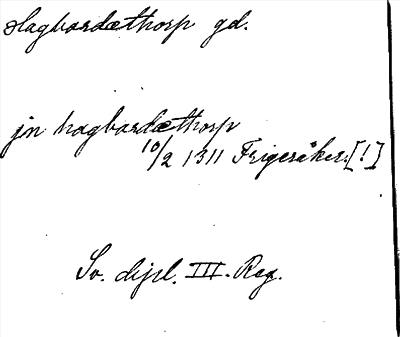 Hagbardæthorp gd.
jn hagbardæthorp
10/2 1311 Frigeråker. [!]
Sv. dipl. III. Reg.